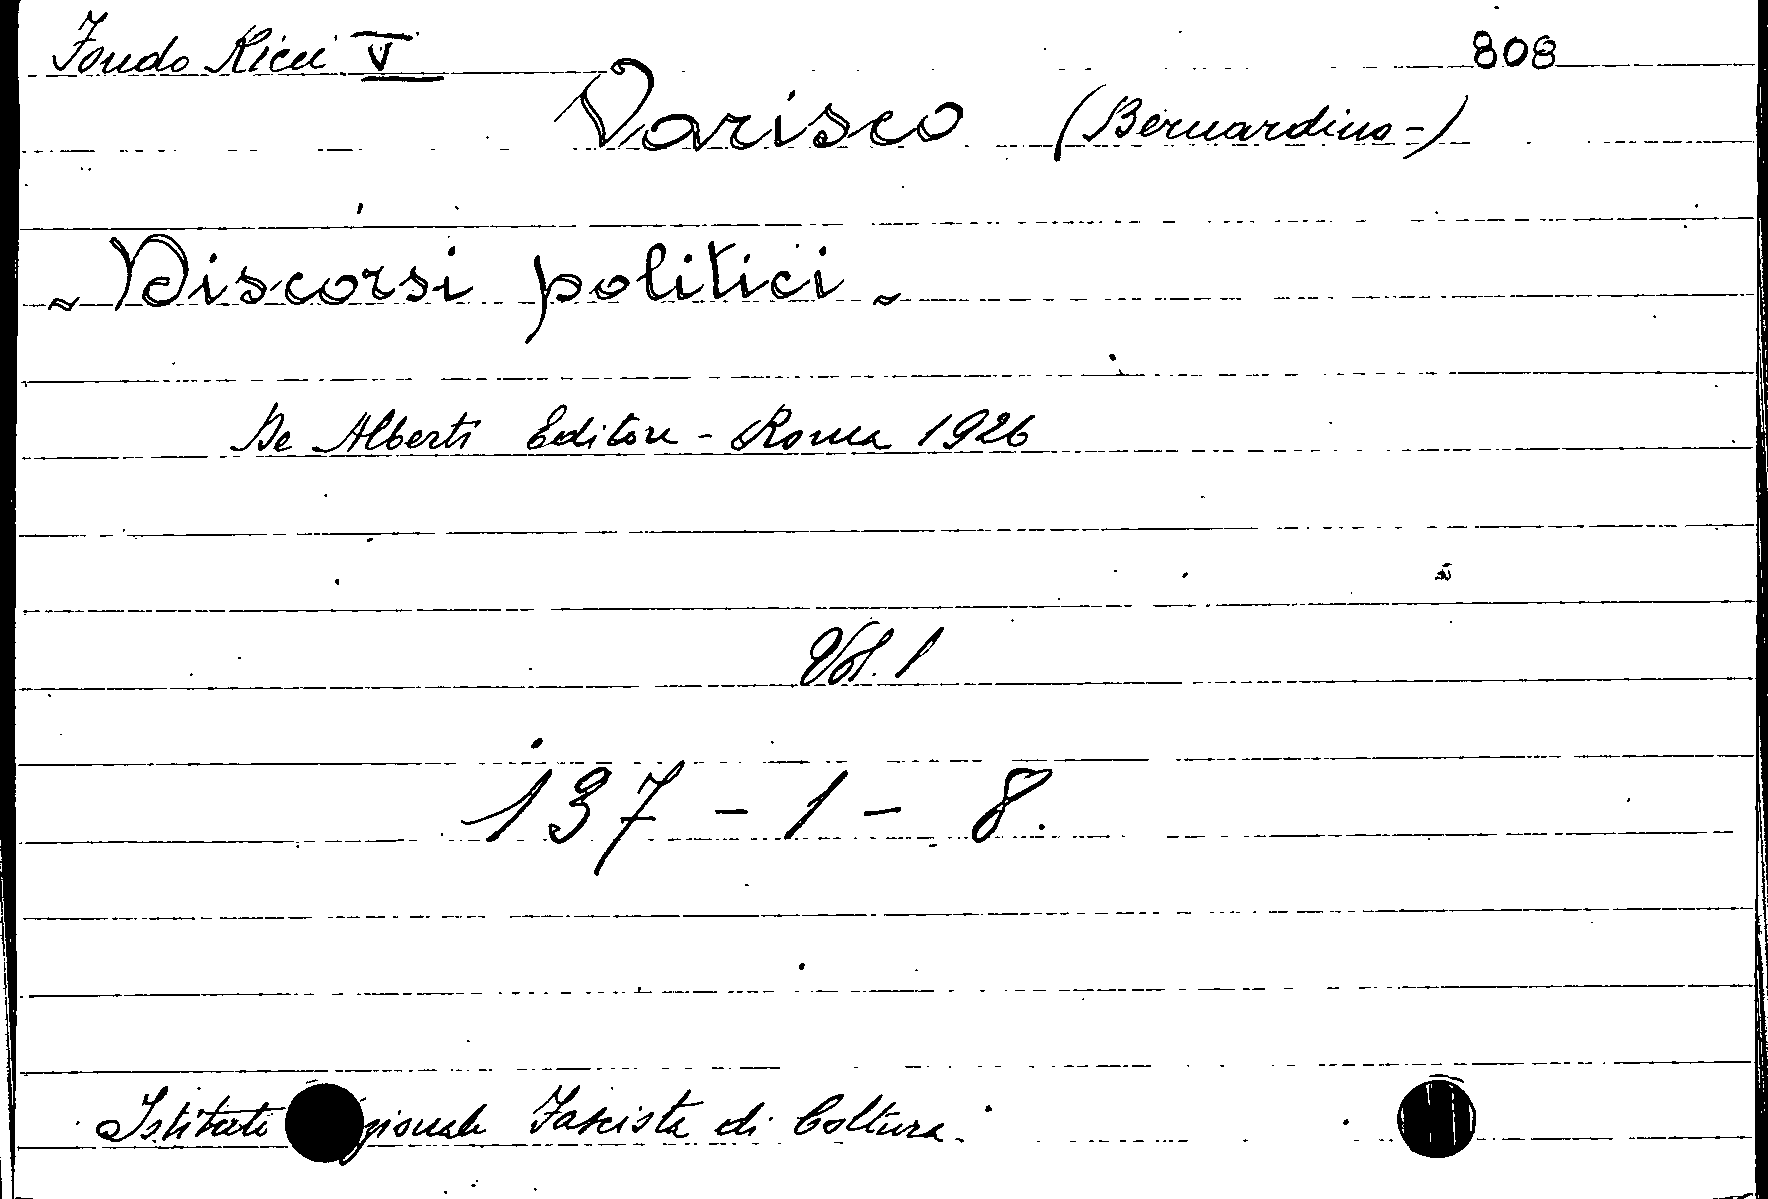 Fondo Ricci V 808
Varisco (Bernardino-)
~ Discorsi politici ~
De Alberti Editore - Roma 1926
Vol. 1
137 - 1 - 8.
Istituto gionale Fascista di Coltura.